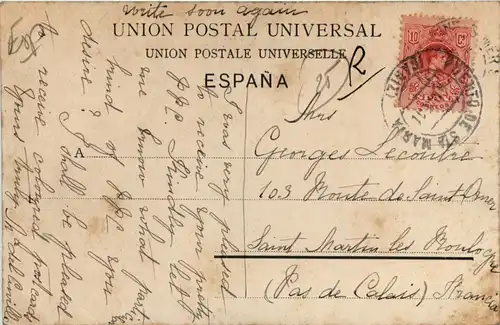 Write soon again
UNION POSTAL UNIVERSAL
UNION POSTALE UNIVERSELLE
ESPAÑA
R
10 Cs
PUERTO DE STA MARIA
A
Georges Lecoutre
103 Route de Saint Omer
Saint Martin les Boulogne
(Pas de Calais) France
I was very pleased
to receive your pretty
P.P.C. Kindly let
me know what parti
kind of P.P.C. you
desire? I shall be pleased
to receive coloured postcards
Yours truly